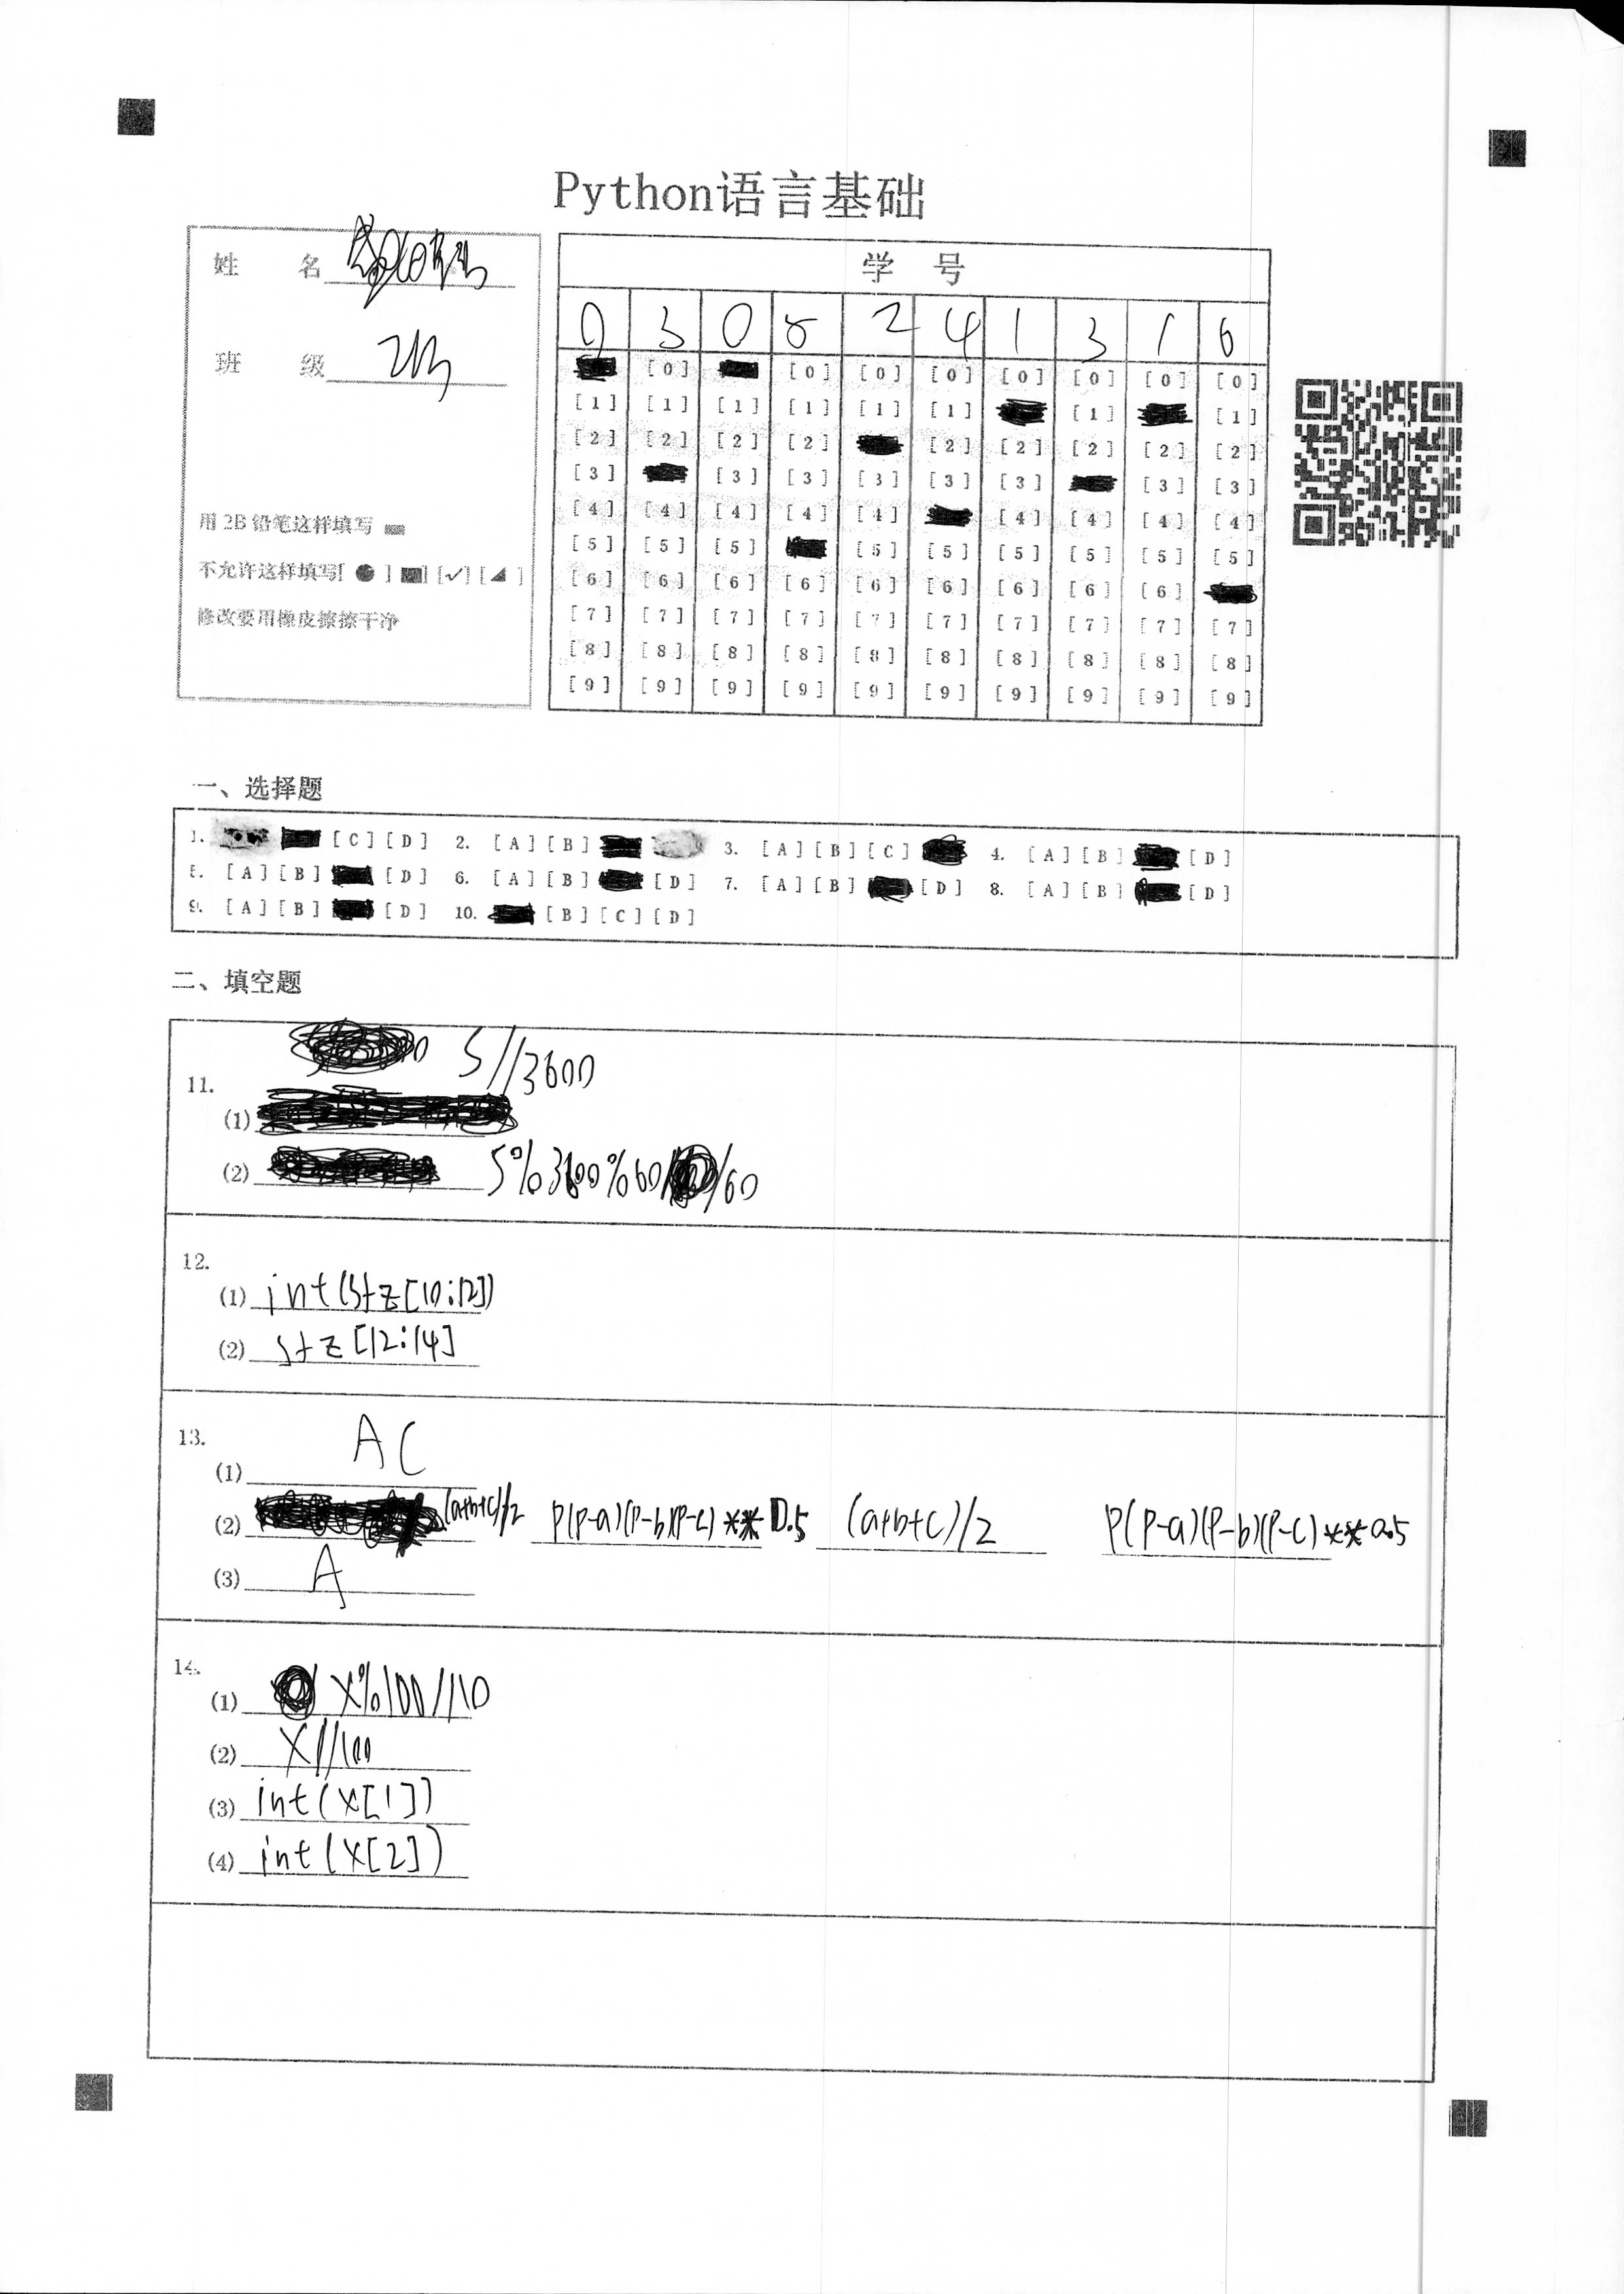 Python语言基础
姓 名
班 级
用 2B 铅笔这样填写
不允许这样填写[ ● ] [■] [✓] [◢ ]
修改要用橡皮擦擦干净
学 号
0 3 0 5 2 4 1 3 1 6
[0] [0] [0] [0] [0] [0] [0] [0]
[1] [1] [1] [1] [1] [1] [1] [1]
[2] [2] [2] [2] [2] [2] [2] [2] [2]
[3] [3] [3] [3] [3] [3] [3] [3]
[4] [4] [4] [4] [4] [4] [4] [4] [4]
[5] [5] [5] [5] [5] [5] [5] [5] [5]
[6] [6] [6] [6] [6] [6] [6] [6] [6]
[7] [7] [7] [7] [7] [7] [7] [7] [7] [7]
[8] [8] [8] [8] [8] [8] [8] [8] [8] [8]
[9] [9] [9] [9] [9] [9] [9] [9] [9] [9]
一、选择题
1. [C] [D] 2. [A] [B] 3. [A] [B] [C] 4. [A] [B] [D]
5. [A] [B] [D] 6. [A] [B] [D] 7. [A] [B] [D] 8. [A] [B] [D]
9. [A] [B] [D] 10. [B] [C] [D]
二、填空题
S//3600
11.
(1)
(2) S%3600%60//60
12.
(1) int(stz[10:12])
(2) stz[12:14]
13.
(1) AC
(2) (a+b+c)/2 P(P-a)(P-b)(P-c)**0.5 (a+b+c)/2 P(P-a)(P-b)(P-c)**0.5
(3) A
14.
(1) X%100//10
(2) X//100
(3) int(x[1])
(4) int(x[2])